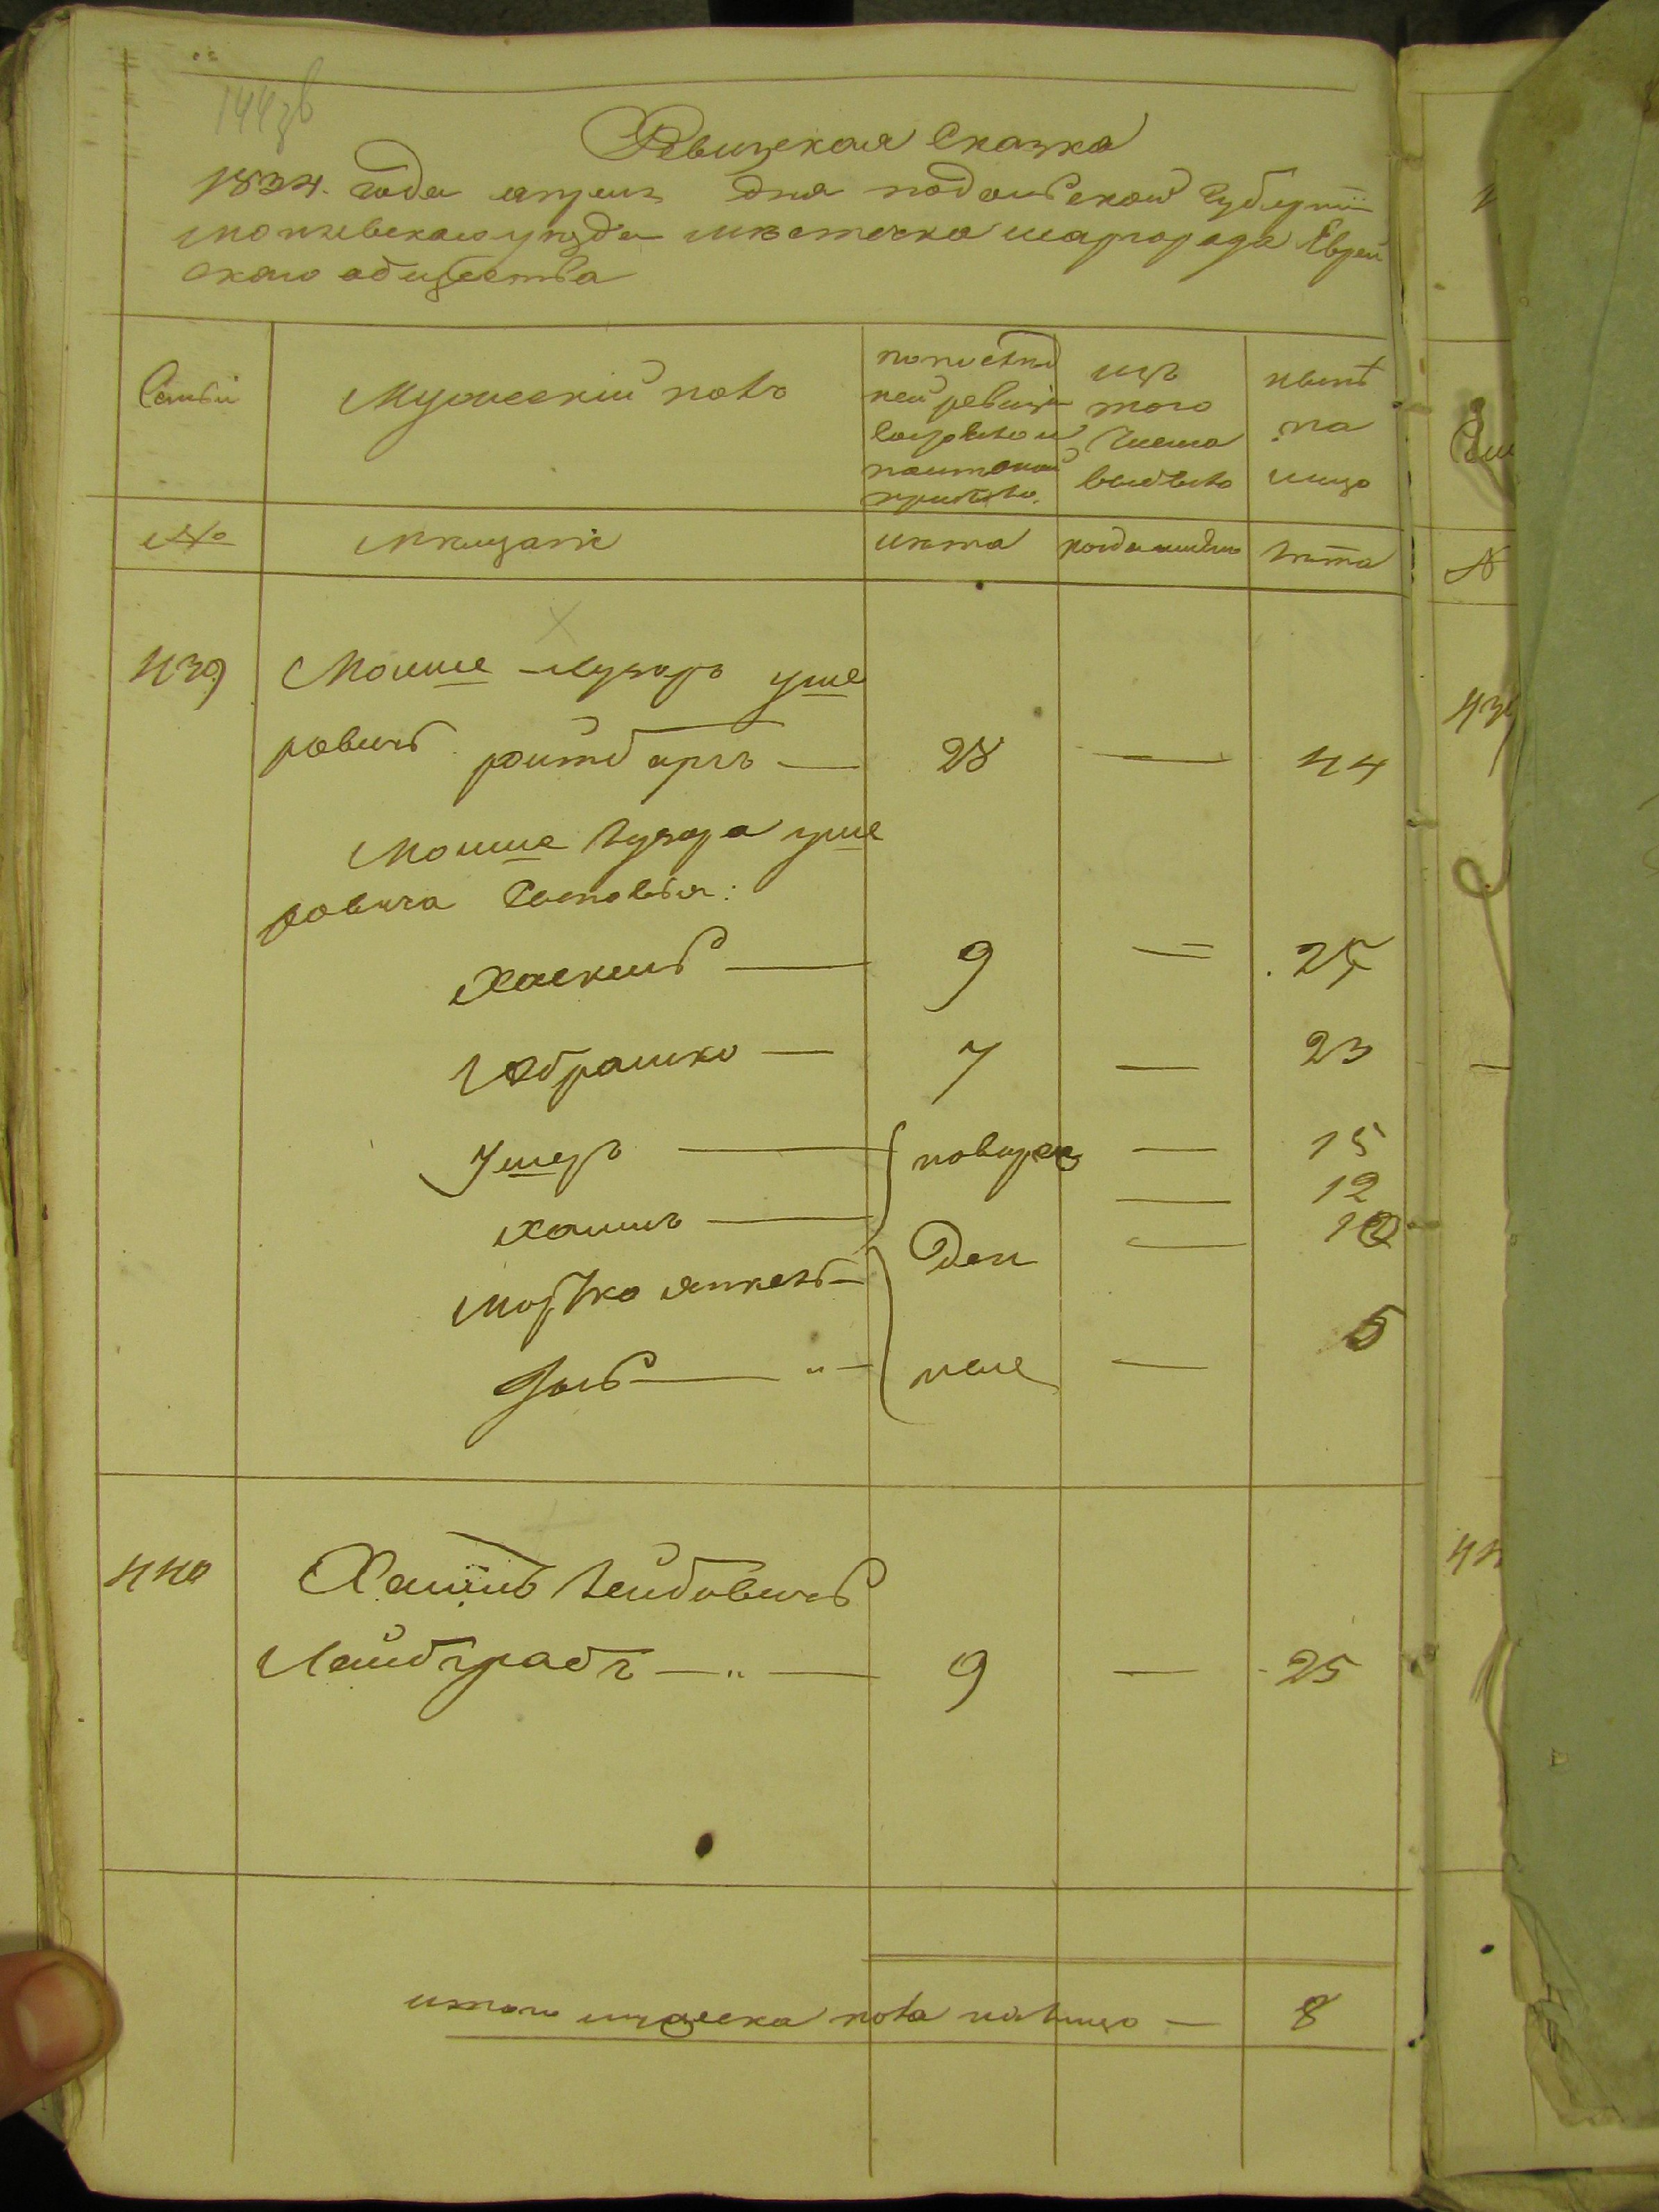 144зв
Ревизская Сказка
1834. года апреля дня подольской Губернiи
могилевского уезда местечка шаргорода Еврей
ского общества
Семьи
Мужескiй полъ
по последней ревизiи состояло и после оной прибыло.
изъ того числа выбыло
ныне на лицо
№
Мещане
лета
когда именно
лета
439
Мошке Лузоръ уше
ровичъ ройтбаргъ — 28 — 44
Мошке Лузора уше
ровича Сыновья:
Хаскель — 9 — 25
Абрамко — 7 — 23
Ушеръ — новорож — 15
Хаимъ — — 12
Мортко Янкель — ден — 10
— ные — 5
440
Хаимъ Лейбовичъ
9 — 25
итого мужеска пола налицо — 8